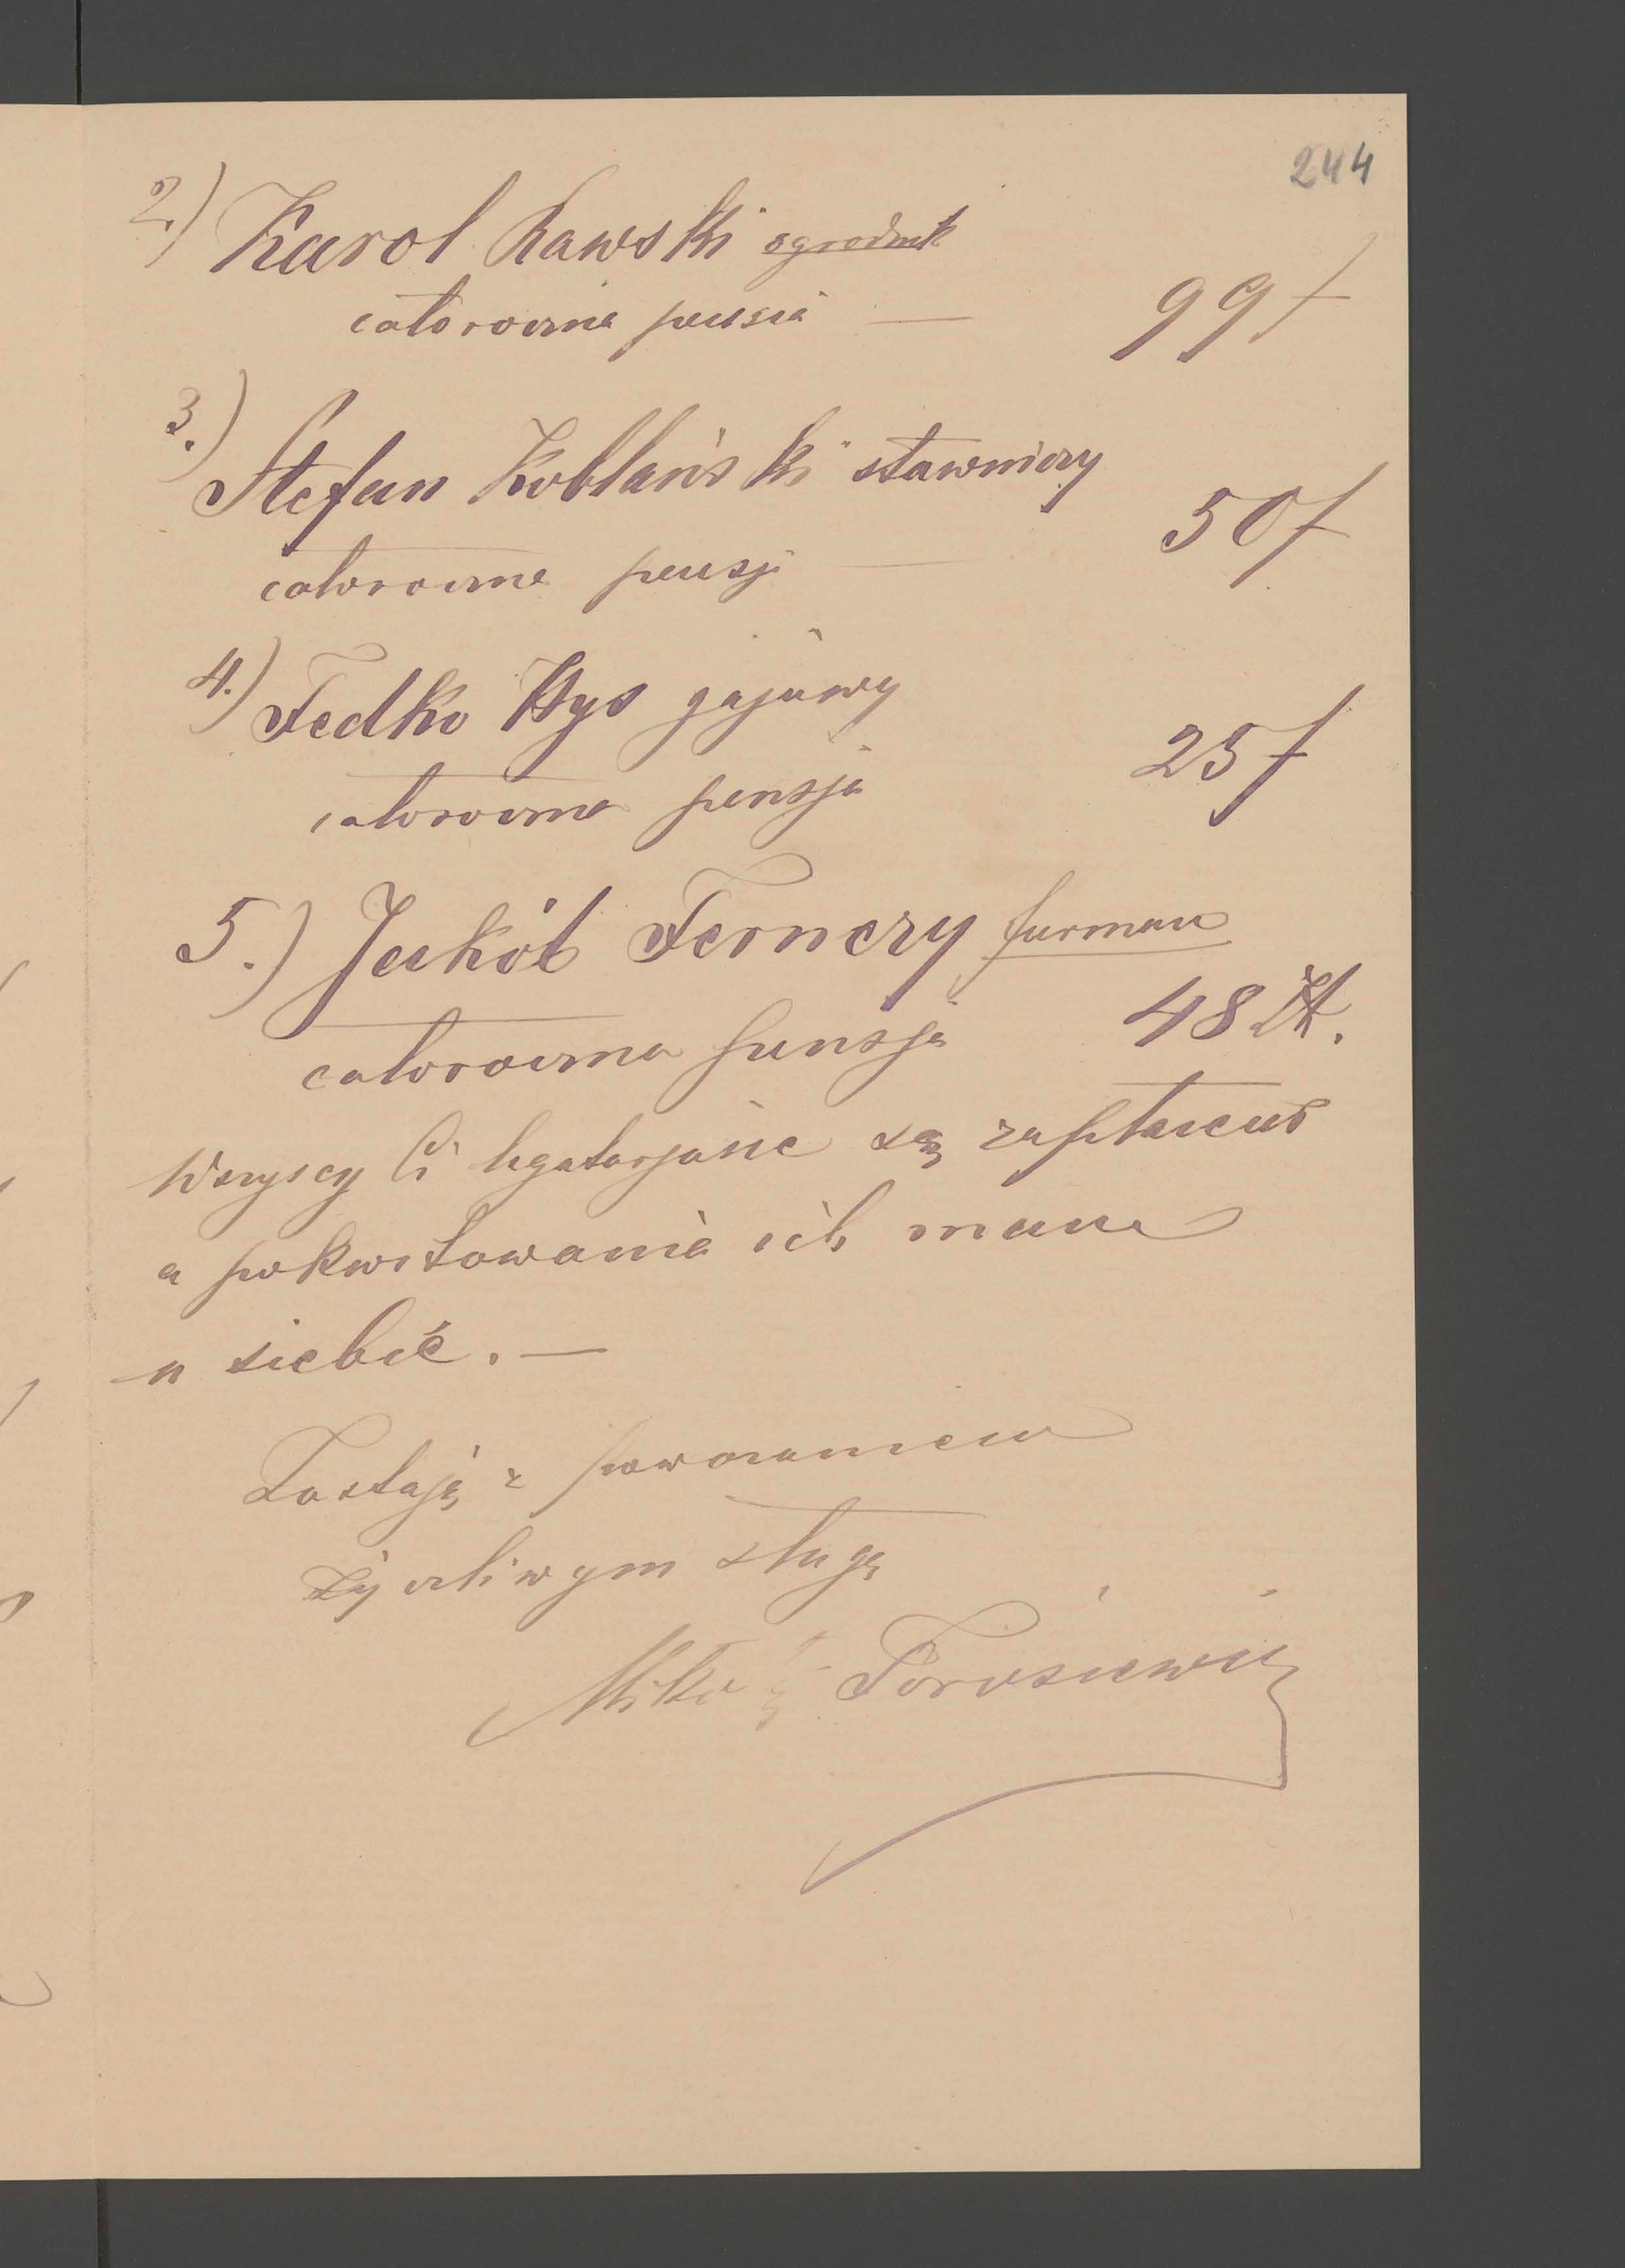 244
2.) Karol Rawski ogrodnik
całoroczna pensia — 99 f
3.) Stefan Koblański stawniczy
całoroczna pensji — 50 f
4.) Fedko Hys gajowy
całoroczna pensja 25 f
5.) Jakób Ferneży furman
całoroczna pensja 48 Zł.
Wszyscy Ci legatarjusze są zapłaceni
a pokwitowania ich mam
u siebie. —
Zostaję z poważaniem
życzliwym sługą
Torosiewicz